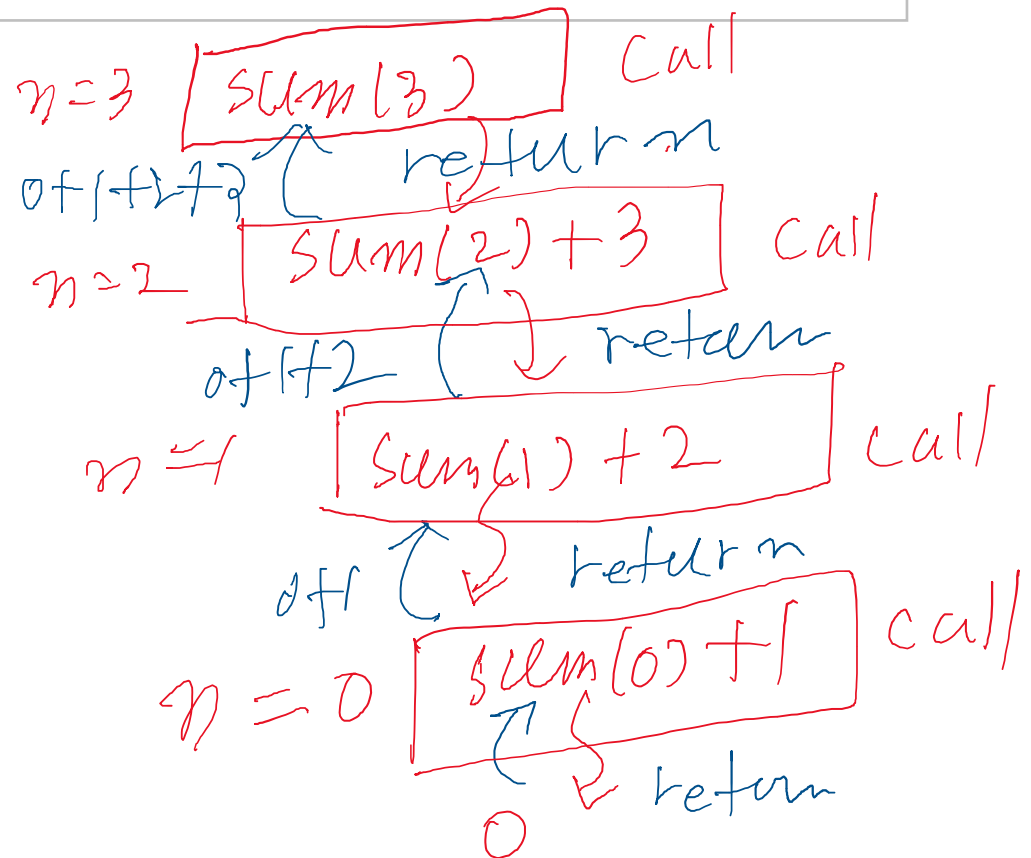 n=3 sum(3) call
0+1+2+3 return
n=2 sum(2)+3 call
0+1+2 return
n=1 sum(1)+2 call
0+1 return
n=0 sum(0)+1 call
return
0